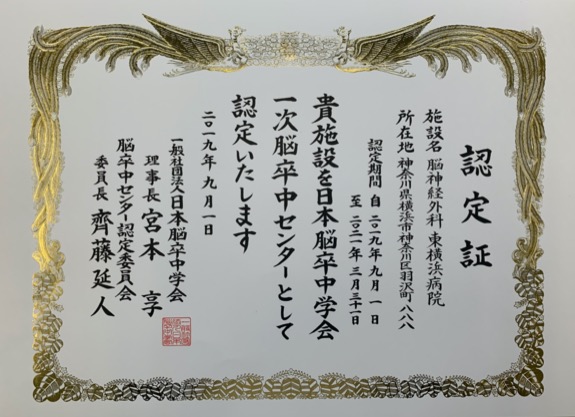 認定証
施設名 脳神経外科 東横浜病院
所在地 神奈川県横浜市神奈川区羽沢町八八八
認定期間 自 二〇一九年 九月 一日
至 二〇二一年 三月三十一日
貴施設を日本脳卒中学会
一次脳卒中センターとして
認定いたします
二〇一九年 九月 一日
一般社団法人 日本脳卒中学会
理事長 宮本 享
脳卒中センター認定委員会
委員長 齊藤 延人